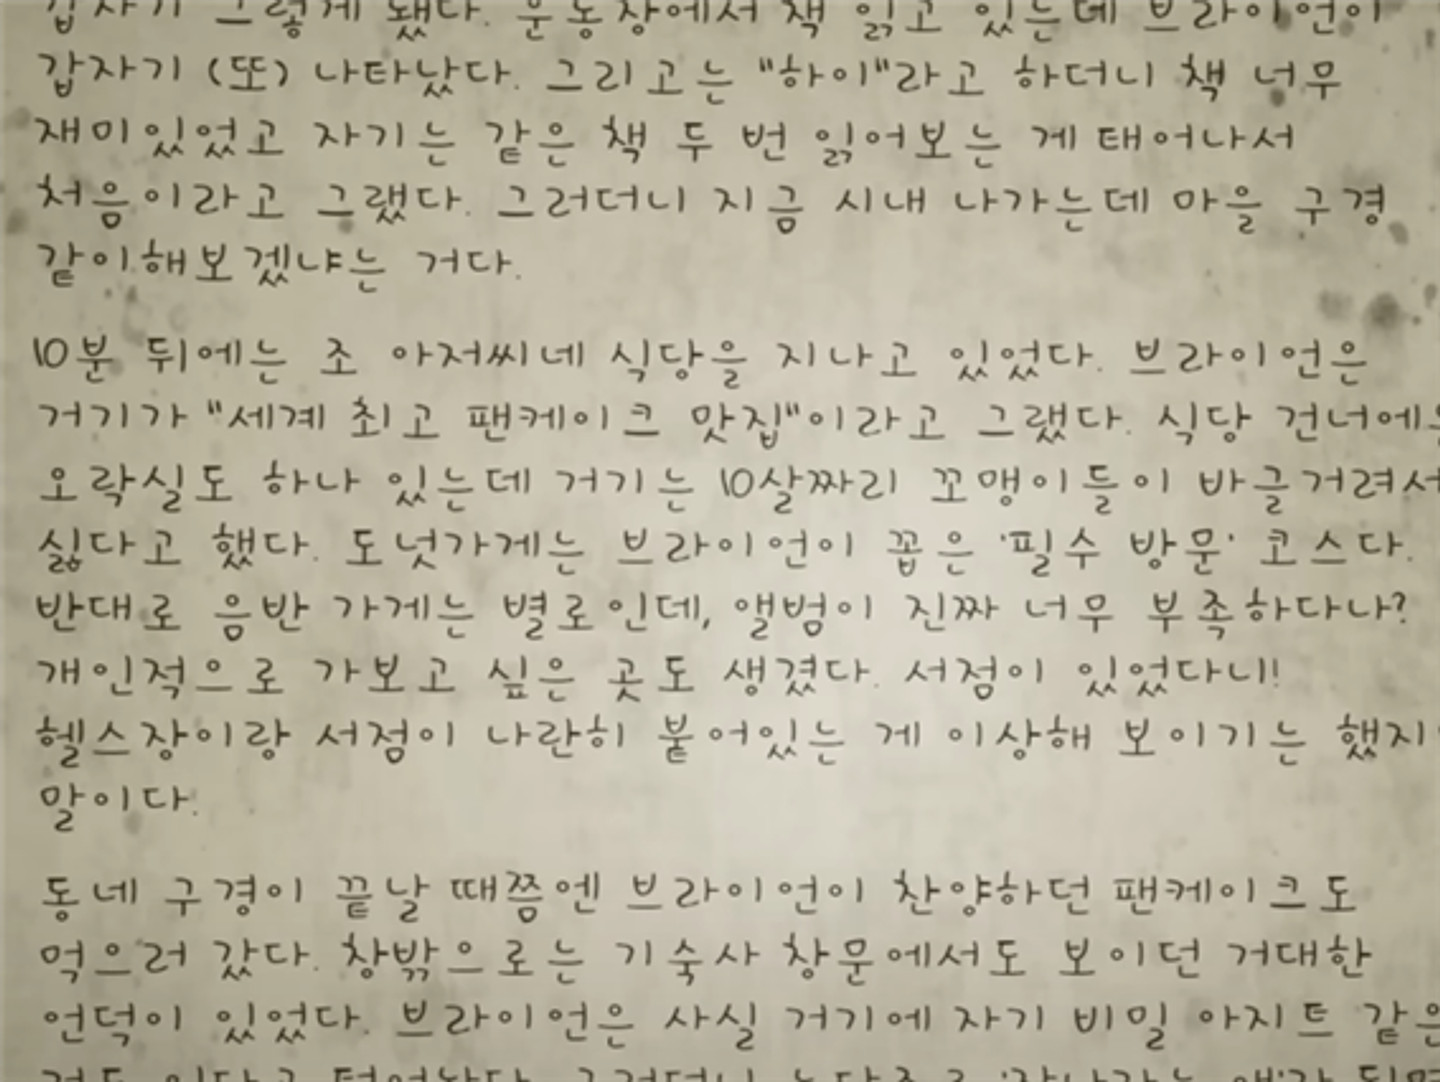 갑자기 그렇게 됐다. 운동장에서 책 읽고 있는데 브라이언이
갑자기 (또) 나타났다. 그리고는 "하이"라고 하더니 책 너무
재미있었고 자기는 같은 책 두 번 읽어보는 게 태어나서
처음이라고 그랬다. 그러더니 지금 시내 나가는데 마을 구경
같이해보겠냐는 거다.
10분 뒤에는 조 아저씨네 식당을 지나고 있었다. 브라이언은
거기가 "세계 최고 팬케이크 맛집"이라고 그랬다. 식당 건너에는
오락실도 하나 있는데 거기는 10살짜리 꼬맹이들이 바글거려서
싫다고 했다. 도넛가게는 브라이언이 꼽은 '필수 방문' 코스다.
반대로 음반 가게는 별로인데, 앨범이 진짜 너무 부족하다나?
개인적으로 가보고 싶은 곳도 생겼다. 서점이 있었다니!
헬스장이랑 서점이 나란히 붙어있는 게 이상해 보이기는 했지
말이다.
동네 구경이 끝날 때쯤엔 브라이언이 찬양하던 팬케이크도
먹으러 갔다. 창밖으로는 기숙사 창문에서도 보이던 거대한
언덕이 있었다. 브라이언은 사실 거기에 자기 비밀 아지트 같은